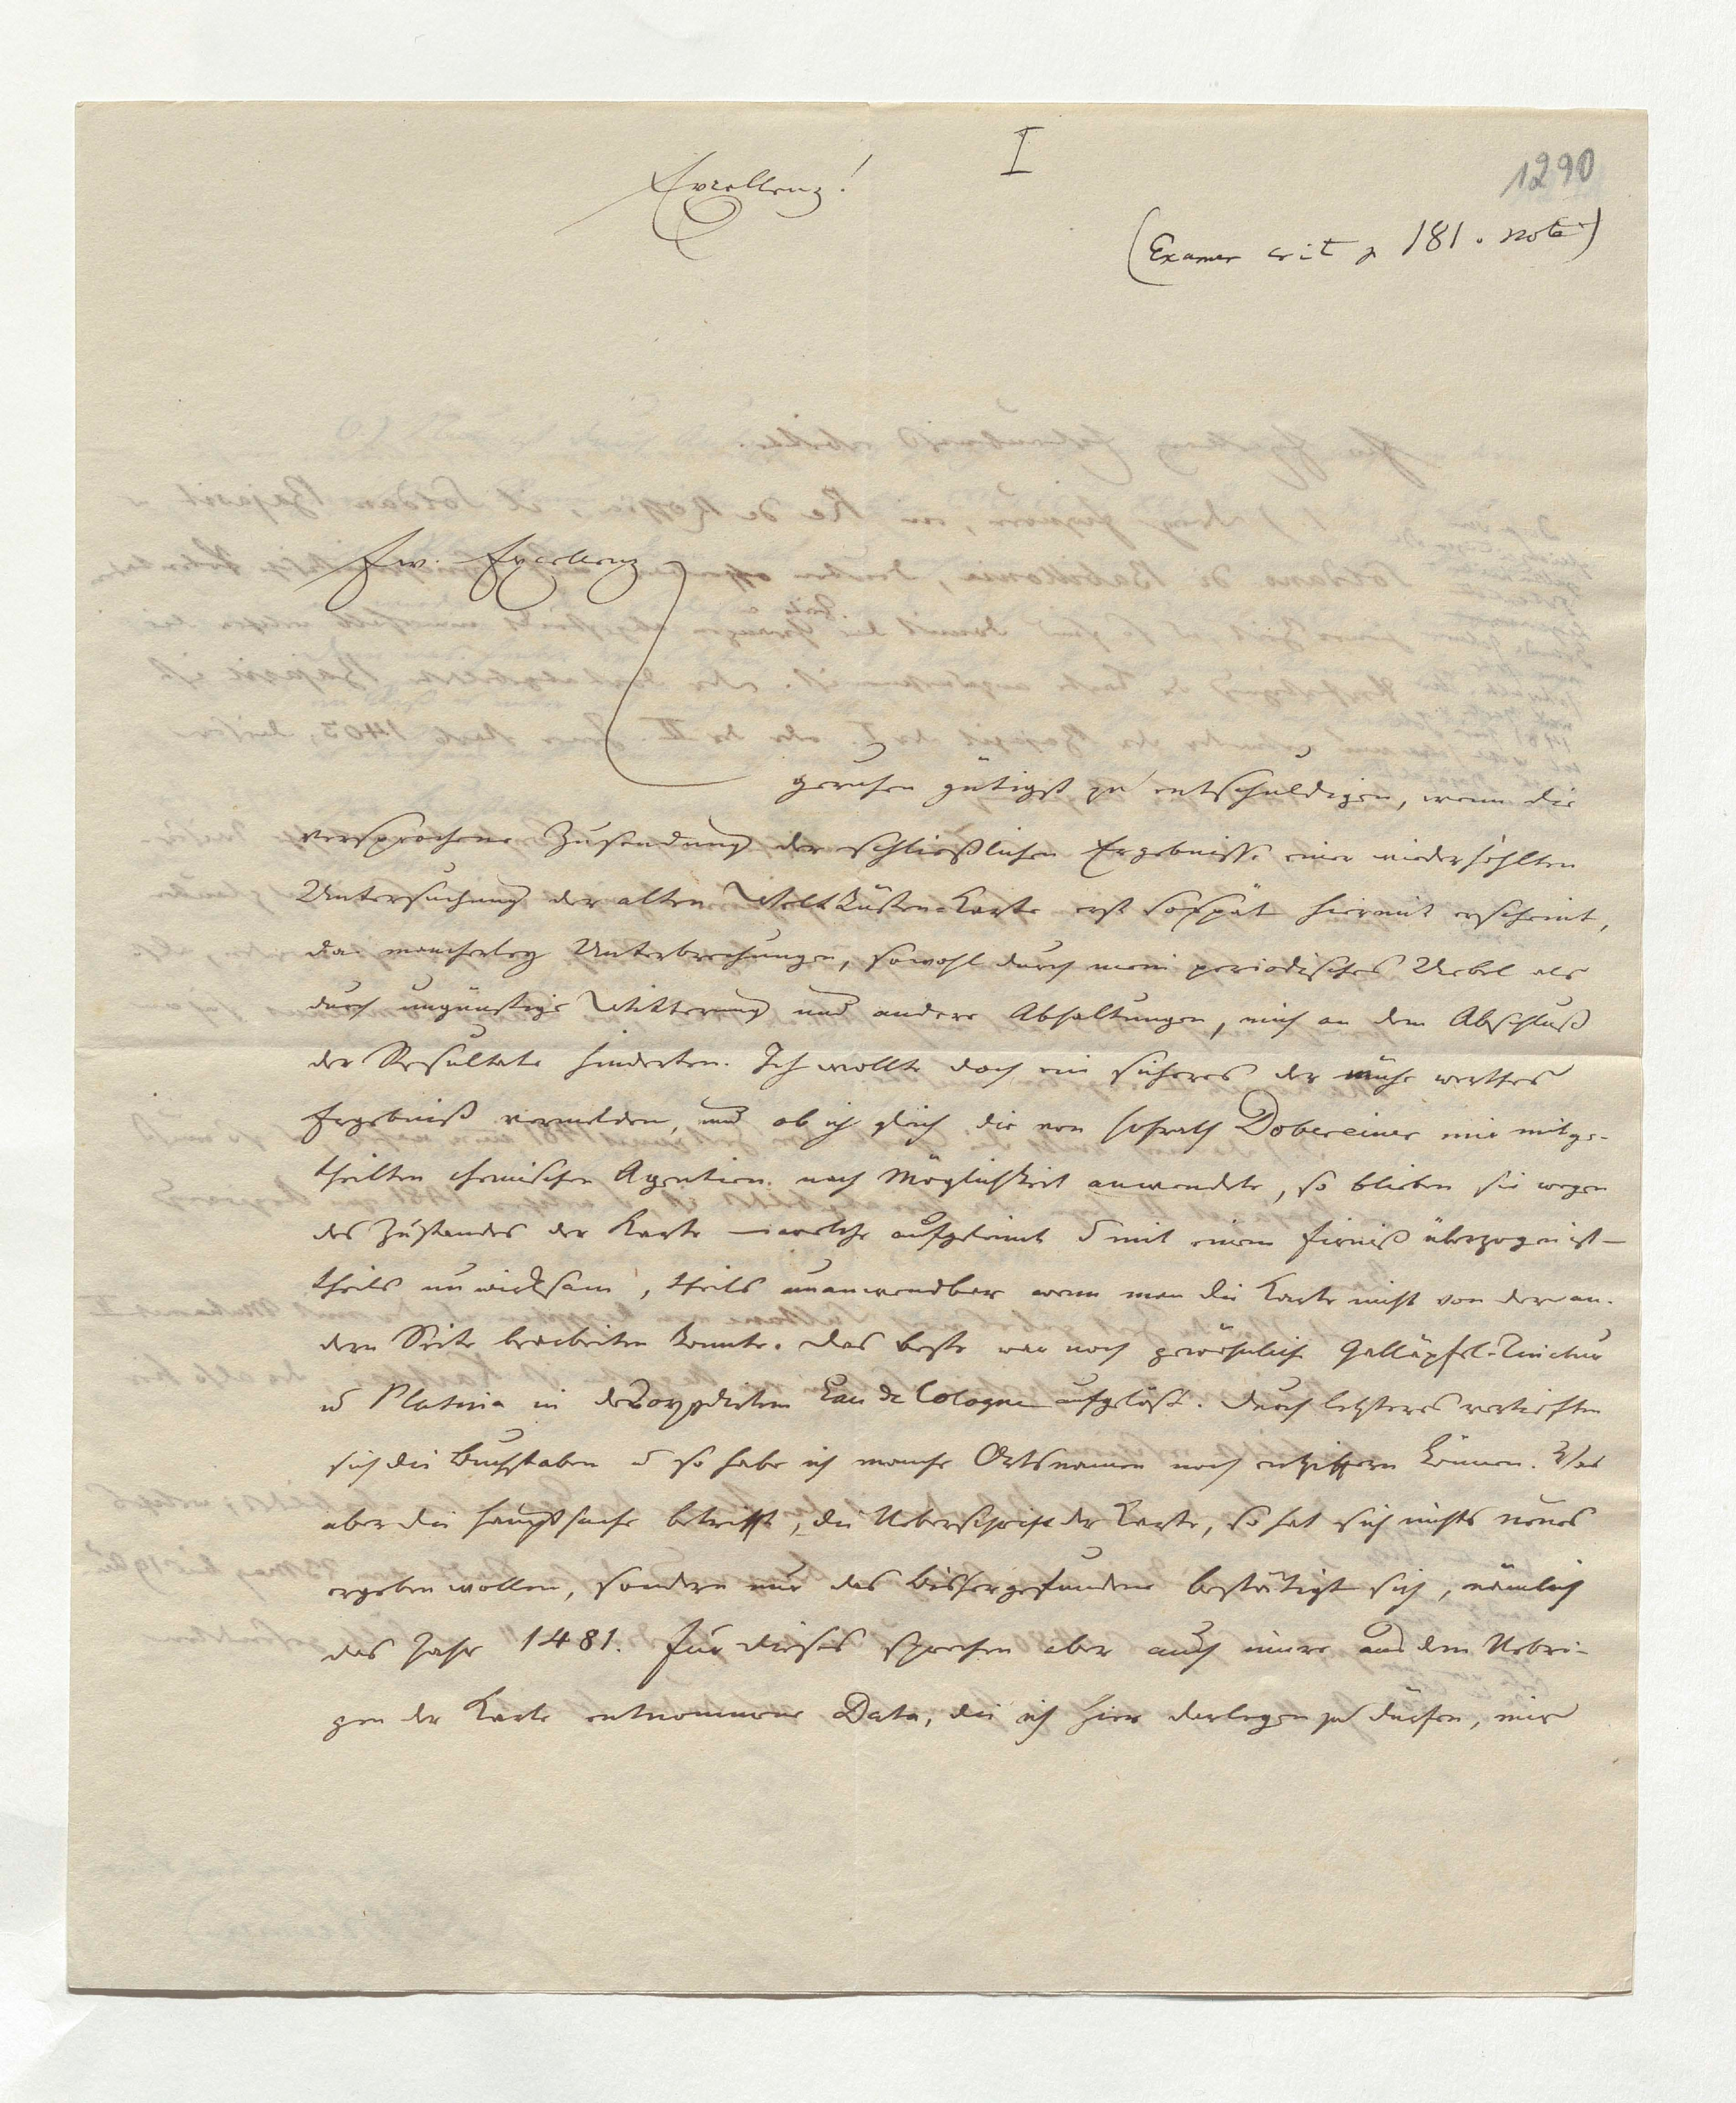 I
1290
Excellenz!
(Examen crit p 181. note)
Ew. Excellenz
geruhen gütigst zu entschuldigen, wenn die
versprochene Zusendung der schließlichen Ergebnisse einer wiederhohlten
Untersuchung der alten Weltküsten-Karte erst so spät hiermit erscheint,
da mancherley Unterbrechungen, sowohl durch mein periodisches Uebel als
durch ungünstige Witterung und andere Abhaltungen, mich an dem Abschluß
der Resultate hinderten. Ich wollte doch ein sicheres der Mühe werthes
Ergebniß vermelden, und ob ich gleich die von Hofrath Dobereiner mir mitge-
theilten chemischen Agentien nach Möglichkeit anwendete, so blieben sie wegen
des Zustandes der Karte – welche aufgeleimt u mit einem Firniß überzogen ist –
theils unwirksam, theils unanwendbar wenn man die Karte nicht von der an-
dern Seite bearbeiten konnte. Das beste war noch gewöhnliche Galläpfel-Tinctur
u Platina in Eau de Cologne aufgelößt. Durch letzteres vertieften
sich die Buchstaben u so habe ich manche Ortsnamen noch entziffern können. Was
aber die Hauptsache betrifft, die Ueberschrift der Karte, so hat sich nichts neues
ergeben wollen, sondern nur das bisher gefundene bestätigt sich, nämlich
das Jahr 1481. Für dieses sprechen aber auch innere aus dem Uebri-
gen der Karte entnommene Data, die ich hier darlegen zu dürfen, mir